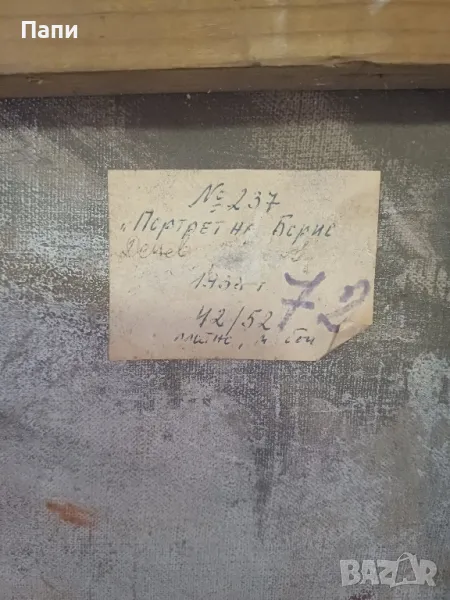 Папи
№ 237
„Портрет на Борис
Денев
72
42/52
платно, м. бои
BAZAR